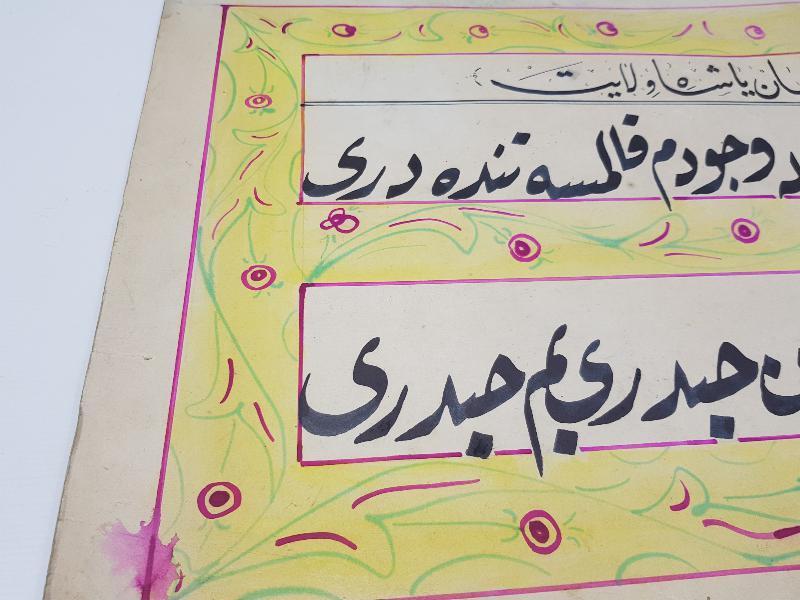 یا شاه ولایت
وجودم قالمسه تنده دری
حیدری یم حیدری